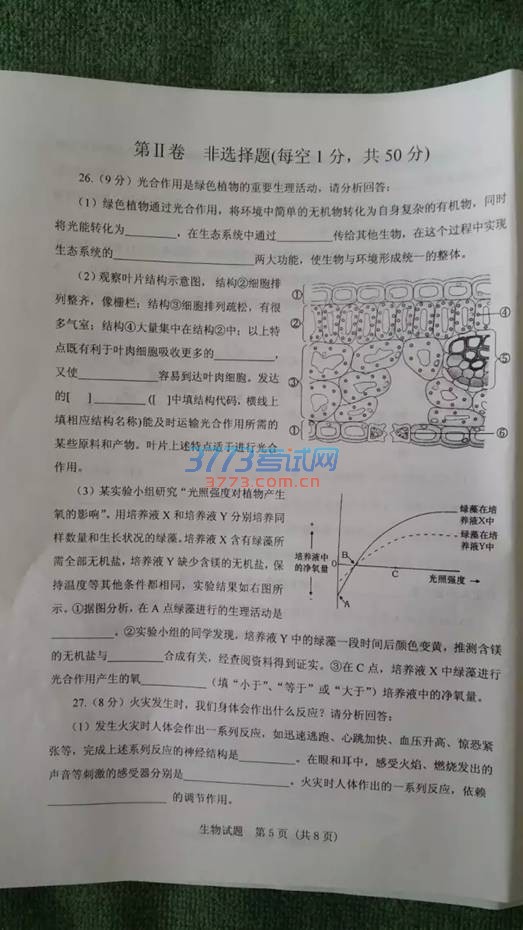 第Ⅱ卷 非选择题(每空1分，共50分)
26.（9分）光合作用是绿色植物的重要生理活动，请分析回答：
（1）绿色植物通过光合作用，将环境中简单的无机物转化为自身复杂的有机物，同时
将光能转化为________，在生态系统中通过________传给其他生物，在这个过程中实现
生态系统的________________两大功能，使生物与环境形成统一的整体。
（2）观察叶片结构示意图，结构②细胞排
列整齐，像栅栏；结构③细胞排列疏松，有很
多气室；结构④大量集中在结构②中；以上特
点既有利于叶肉细胞吸收更多的________，
又使________容易到达叶肉细胞。发达
的[ ]________（[ ]中填结构代码，横线上
填相应结构名称)能及时运输光合作用所需的
某些原料和产物。叶片上述特点适于进行光合
作用。
①
②
③
①
④
⑤
⑥
3773考试网
3773.com.cn
（3）某实验小组研究“光照强度对植物产生
氧的影响”。用培养液X和培养液Y分别培养同
样数量和生长状况的绿藻。培养液X含有绿藻所
需全部无机盐，培养液Y缺少含镁的无机盐，保
持温度等其他条件都相同，实验结果如右图所
示。①据图分析，在A点绿藻进行的生理活动是
________。②实验小组的同学发现，培养液Y中的绿藻一段时间后颜色变黄，推测含镁
的无机盐与________合成有关，经查阅资料得到证实。③在C点，培养液X中绿藻进行
光合作用产生的氧________（填“小于”、“等于”或“大于”）培养液中的净氧量。
绿藻在培
养液X中
绿藻在培
养液Y中
培养液中
的净氧量
+
0
-
B
A
C
光照强度
27.（8分）火灾发生时，我们身体会作出什么反应？请分析回答：
（1）发生火灾时人体会作出一系列反应，如迅速逃跑、心跳加快、血压升高、惊恐紧
张等，完成上述系列反应的神经结构是________。在眼和耳中，感受火焰、燃烧发出的
声音等刺激的感受器分别是________________。火灾时人体作出的一系列反应，依赖
________________的调节作用。
生物试题 第5页（共8页）